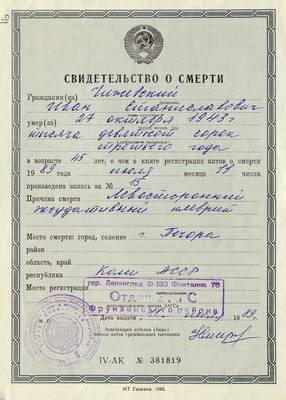 СВИДЕТЕЛЬСТВО О СМЕРТИ
Гражданин(ка) Чижевский
Иван Станиславович
умер(ла) 27 октября 1943 г.
тысяча девятьсот сорок
третьего года
в возрасте 45 лет, о чем в книге регистрации актов о смерти
1989 года июля месяца 11 числа
произведена запись за № 15
Причина смерти Левосторонний
экссудативный плеврит
Место смерти: город, селение г. Печора
район
область, край
республика Коми АССР
Место регистрации гор. Ленинград Ф-180 Фонтанка 76
Отдел ЗАГС
Фрунзенского района
Дата выдачи июля 1989 г.
Заведующий отделом (бюро)
записи актов гражданского состояния
IV-АК № 381819
МТ Гознака. 1983.